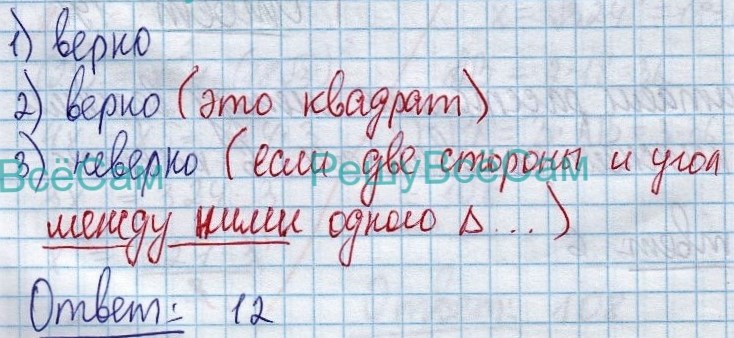 1) верно
2) верно (это квадрат)
3) неверно (если две стороны и угол
ВсёСам РешуВсёСам
между ними одного Δ...)
Ответ: 12